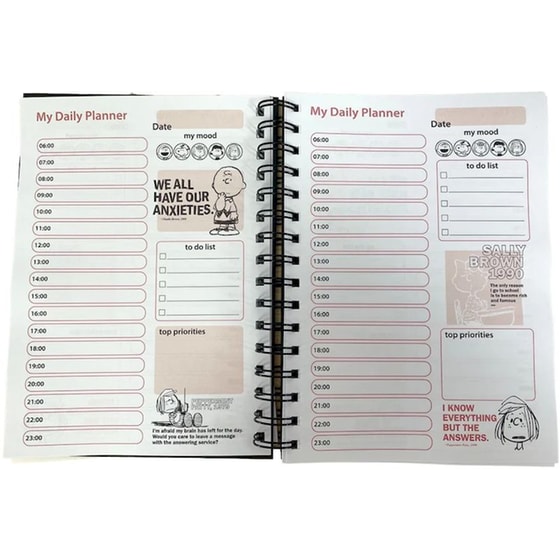 My Daily Planner
Date
my mood
06:00
07:00
08:00
09:00
10:00
11:00
12:00
13:00
14:00
15:00
16:00
17:00
18:00
19:00
20:00
21:00
22:00
23:00
WE ALL
HAVE OUR
ANXIETIES.
to do list
top priorities
PEPPERMINT
PATTY, 1970
I'm afraid my brain has left for the day.
Would you care to leave a message
with the answering service?
My Daily Planner
Date
my mood
06:00
07:00
08:00
09:00
10:00
11:00
12:00
13:00
14:00
15:00
16:00
17:00
18:00
19:00
20:00
21:00
22:00
23:00
to do list
SALLY
BROWN
1990
The only reason
I go to school
is to become rich
and famous
top priorities
I KNOW
EVERYTHING
BUT THE
ANSWERS.